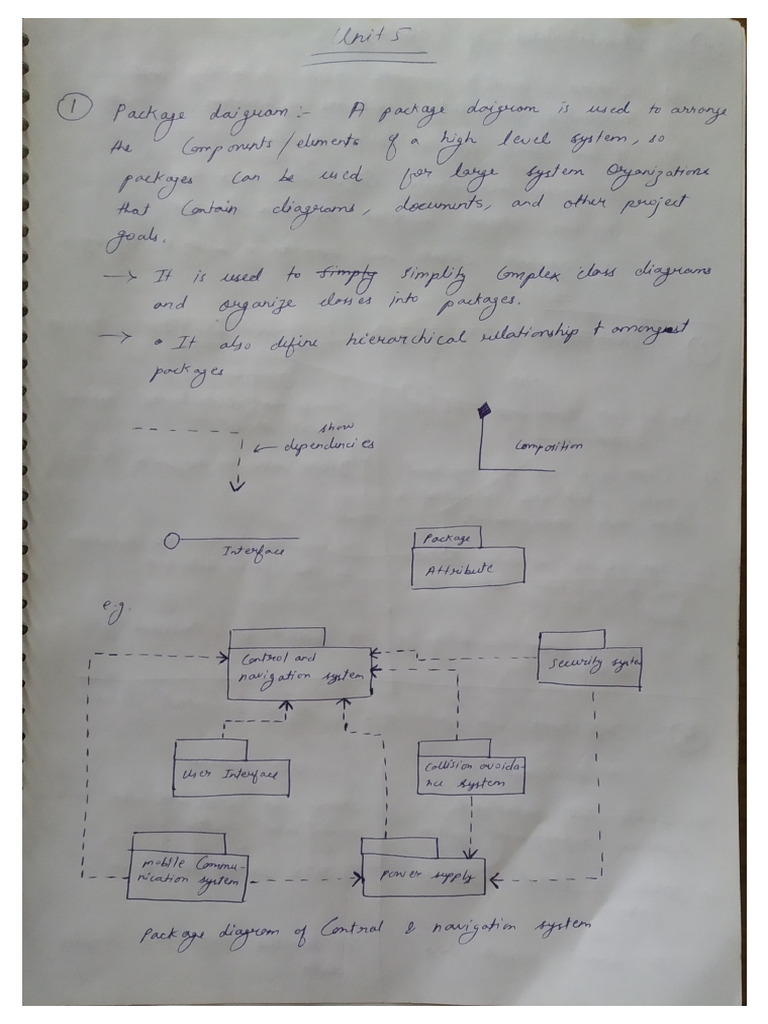 Unit 5
① Package daigram:- A package daigram is used to arrange
the components/elements of a high level system, so
packages can be used for large system organizations
that contain diagrams, documents, and other project
goals.
→ It is used to simply simplify complex class diagrams
and organize classes into packages.
→ • It also define hierarchical relationship & amongst
packages
show
← dependencies
composition
Interface
Package
Attribute
e.g.
Control and
navigation system
Security system
User Interface
Collision avoida-
nce system
Mobile Commu-
nication system
Power supply
Package diagram of Control & navigation system